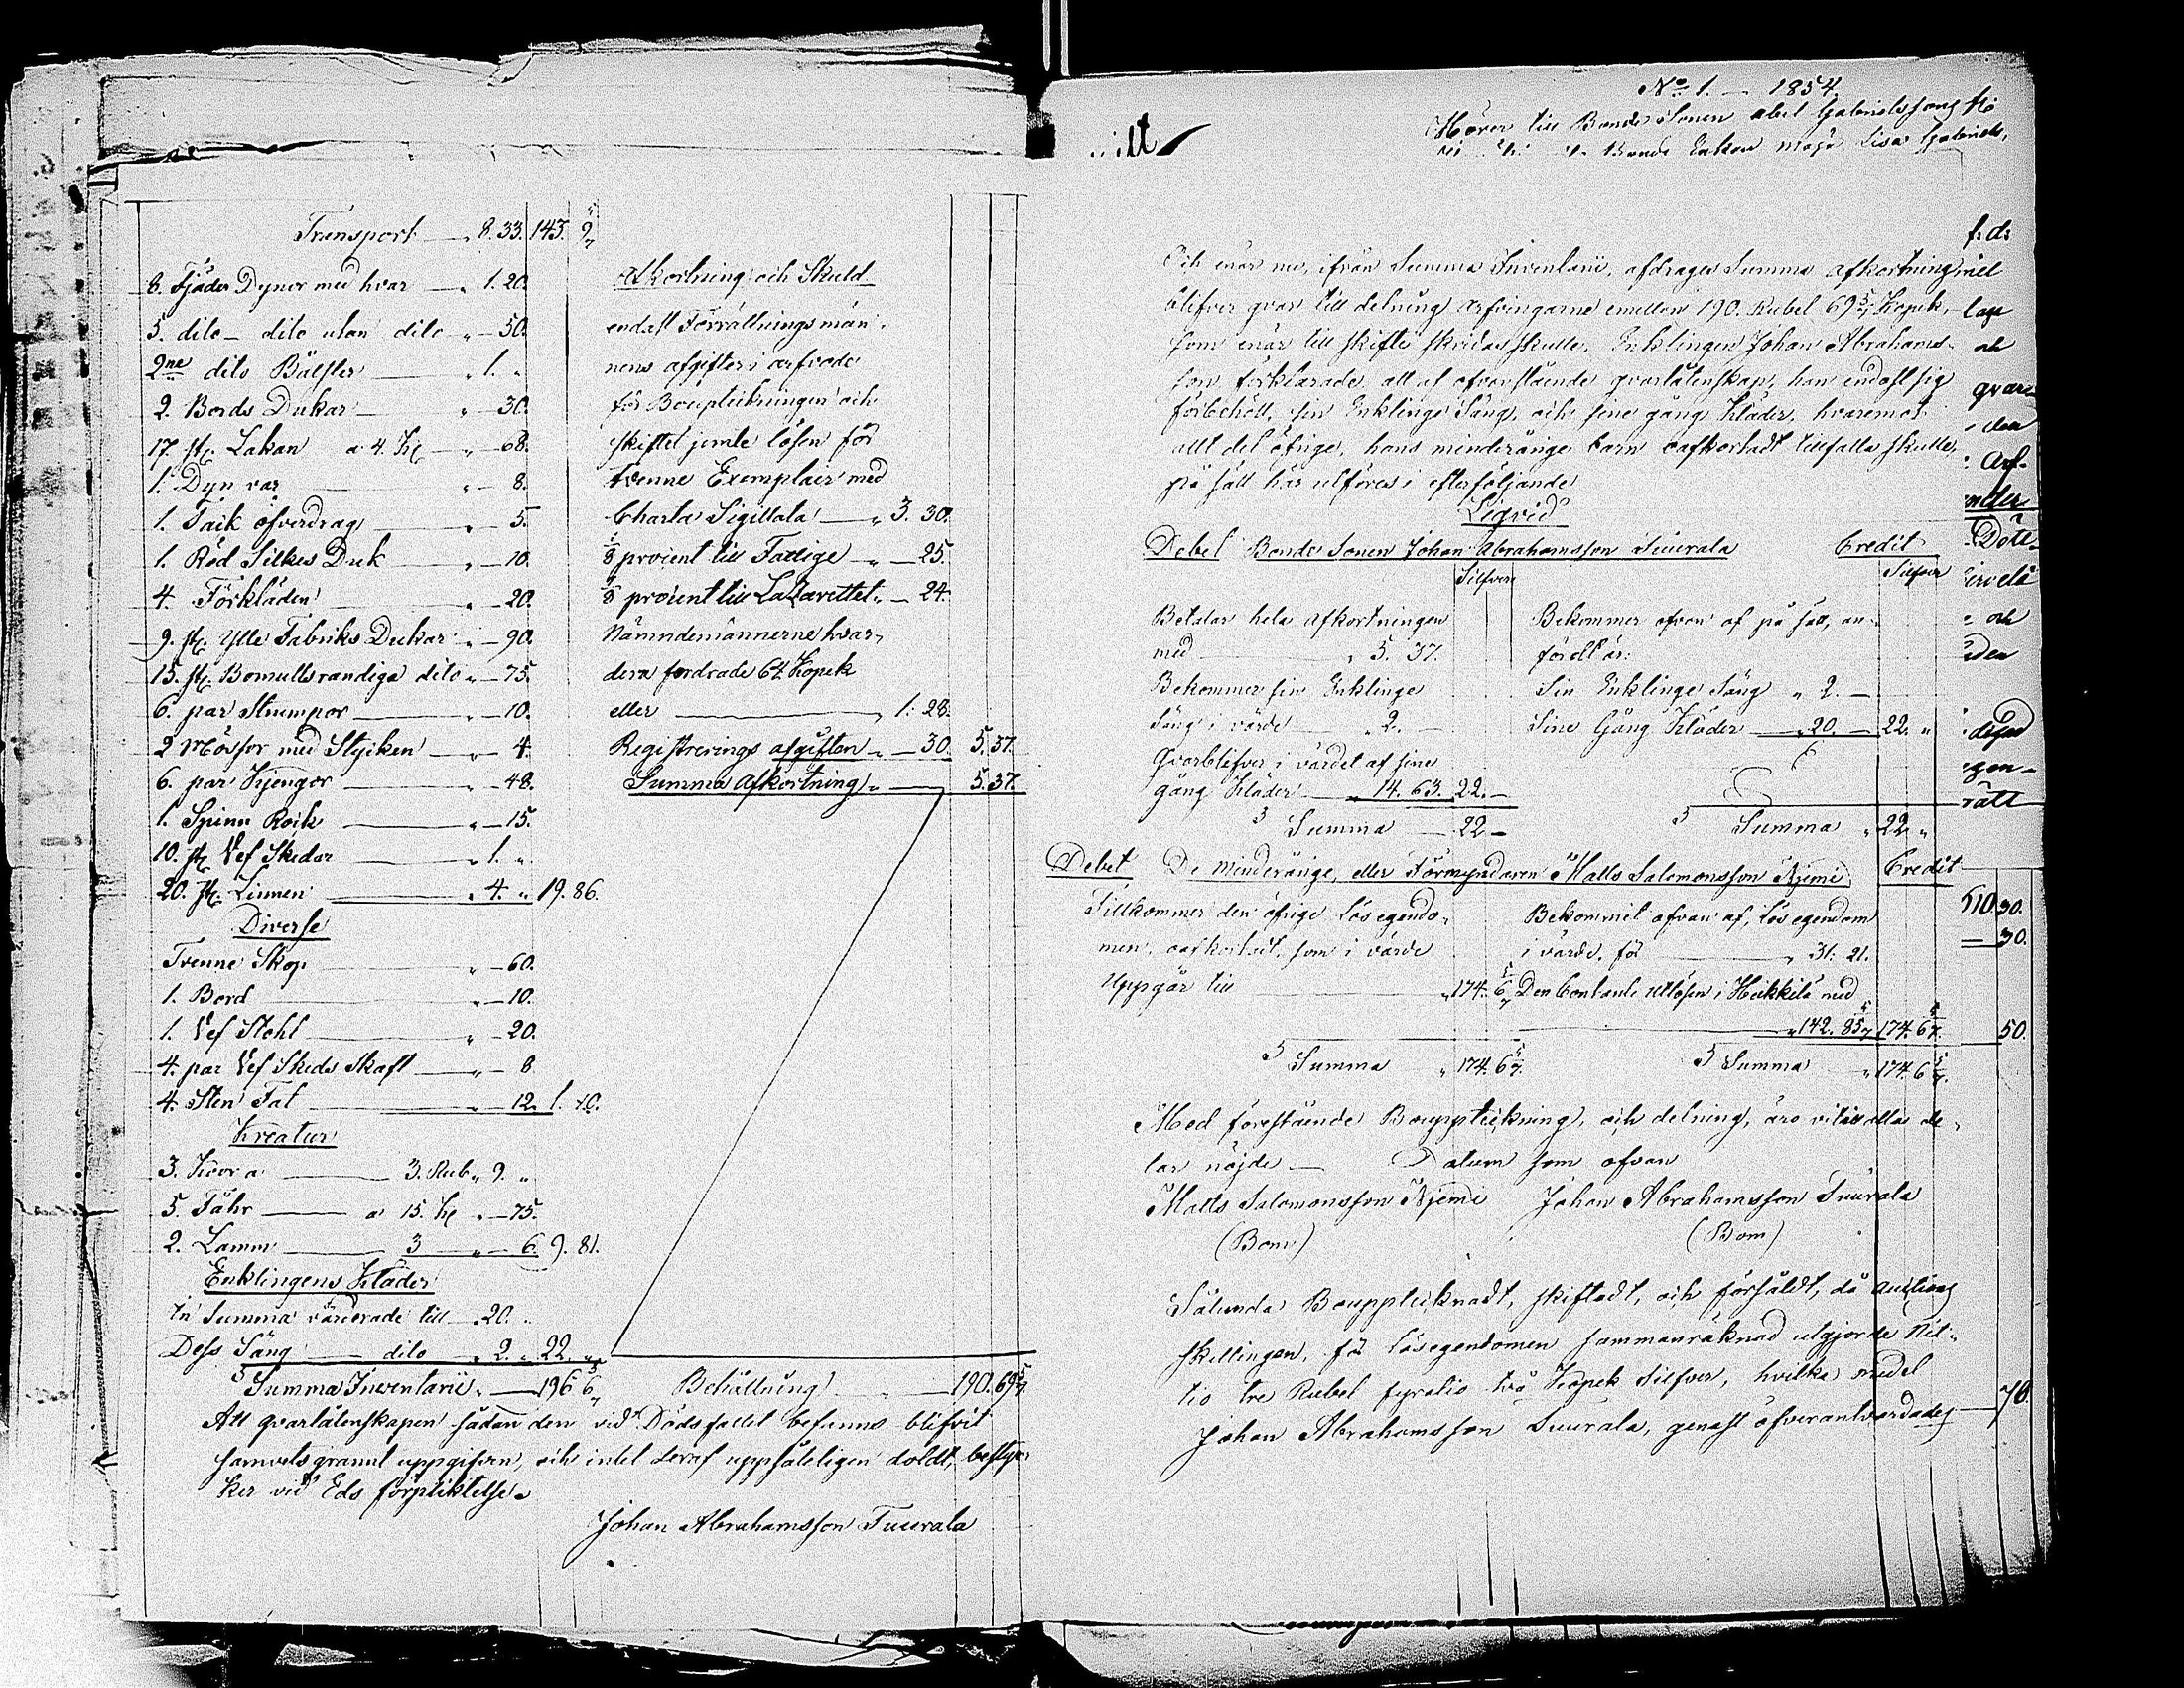 Transport — „ 8. 33. 143. 9 5/7
8. Fjäder Dynor med hvar — „ 1. 20.
5. dito – dito utan dito „ — 50.
2ne dito Bälster — „ 1. „
2. Bords Dukar — „ — 30.
17. st. Lakan a 4. K. — „ — 68.
1. Dyn var — „ — 8.
1. Täck öfverdrag — „ — 5.
1. Röd Silkes Duk — „ — 10.
4. Förkläden — „ — 20.
9. st. Ylle Fabriks Dukar „ — 90.
15. st. Bomullsrandiga dito „ — 75.
6. par Strumpor — „ — 10.
2 Mössor med Stycken — „ — 4.
6. par Kjengor — „ — 48.
1. Spinn Rock — „ — 15.
10. st. Vef Skedar — „ 1. „
20. st. Linnen — „ 4. „ 19. 86.
Diverse
Tvenne Skåp — „ — 60.
1. Bord — „ — 10.
1. Vef Stohl — „ — 20.
4. par Vef Skeds Skaft — „ — 8
4. Sten Fat — „ — 12. 1. 10.
Kreatur
3. Kor a — 3. Rub „ 9. „
5. Fåhr — a 15. K. „ — 75.
2. Lamm — 3 — „ — 6. 9. 81.
Enklingens Kläder
in Summa värderade till „ 20. „
Dess Säng — dito „ 2. „ 22. „
Summa Inventarii „ — 196 6 5/7
Afkortning och Skuld
endast Förrättnings män-
nens afgifter i arfvode
för Bouptekningen och
skiftet jemte lösen för
tvenne Exemplair med
Charta Sigillata — „ 3. 30.
1/8 procent till Fattige — „ — 25.
1/8 procent till Lazarettet „ — 24.
Nämndemännerne hvar-
dera fordrade 64 Kopek
eller — „ 1: 28.
Registrerings afgiften „ — 30. 5. 37.
Summa Afkortning „ — 5. 37.
Behållning — 190. 69 5/7
Att qvarlåtenskapen sådan den vid Dödsfallet befunns blifvit
samvetsgrannt uppgifven, och intet deraf uppsåteligen doldt, bestyr-
ker vid Eds förpliktelse.
Johan Abrahamsson Tuurala
No 1. — 1854.
Hörer till Bonde Sonen Abel Gabrielssons
Bonde Enkan Maja Lisa Gabriels,
Och enär nu, ifrån Summa Inventarii, afdrages Summa afkortning
blifver qvar till delning arfvingarne emellan 190. Rubel 69 5/7 Kopek,
som enär till skifte skridas skulle, Enklingen Johan Abrahams-
son förklarade att af ofvanstående qvarlåtenskap, han endast sig
förbehöll, sin Enklinge Säng, och sine gång Kläder, hvaremot
allt det öfrige, hans minderårige barn oafkortadt tillfalla skulle,
på sätt här utföres i efterföljande
Liqvid
Debet Bonde Sonen Johan Abrahamsson Tuurala Credit
Silfver Silfver
Betalar hela afkortningen
med — „ 5. 37.
Bekommer sin Enklinge
Säng i värde — „ 2. —
Qvarblifver i värdet af sine
gång Kläder — „ 14. 63. 22. —
Summa — 22 —
Bekommer ofvan af på sätt, an-
fördt är:
Sin Enklinge Säng „ 2. —
Sine Gång Kläder — „ 20. — 22. „
Summa „ 22 „
Debet De Minderårige, eller Förmyndaren Matts Salomonsson Njemi Credit
Tillkommer den öfrige lösegendo-
men, oafkortadt, som i värde
Uppgår till — „ 174. 6 5/7
Summa „ 174. 6 5/7
Bekommit ofvan af, lösegendom
i värde, för — „ 31. 21.
Den Contante utlösen i Heikkilä med
— „ 142. 85 5/7 174. 6 5/7
Summa „ 174. 6 5/7
Med förestående Bouppteckning, och delning, äro vi till alla de-
lar nöjde — Datum som ofvan
Matts Salomonsson Njemi Johan Abrahamsson Tuurala
(Bom) (Bom)
Sålunda Boupptecknadt, skiftadt, och försåldt, då Auctions
skillingen, för lösegendomen sammanräknad utgjorde Nit-
tio tre Rubel fyratio två Kopek Silfver, hvilka medel
Johan Abrahamsson Tuurala, genast öfverantvardades